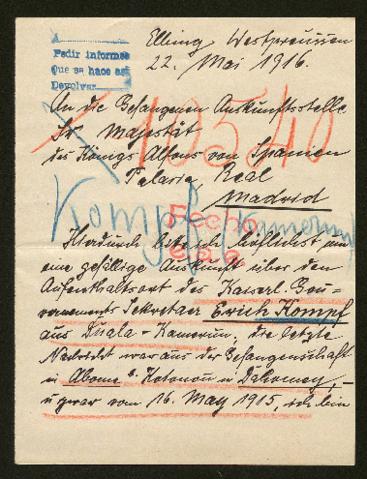 A
Pedir informes
Que se hace así
Devolver
Elbing Westpreussen
22. Mai 1916.
An die Gefangenen Auskunftsstelle
Sr. Majestät
des Königs Alfons von Spanien
Palacio Real
Madrid
10540
Kompf Kamerun
Fecho
Hierdurch bitte ich höflichst um
eine gefällige Auskunft über den
Aufenthaltsort des Kaiserl. Gou-
vernements Sekretaer Erich Kompf
aus Duala-Kamerun, die letzte
Nachricht war aus der Gefangenschaft
in Abome b. Kotonou in Dahomey,
u. zwar vom 16. May 1915, ich bin